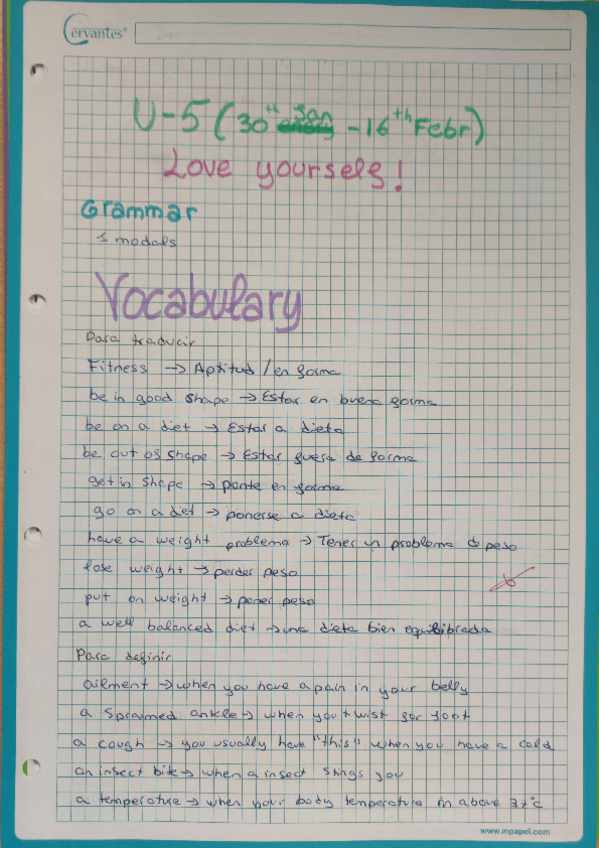 Cervantes®
U-5 (30th Jan -16th Febr)
Love yourself!
Grammar
modals
Vocabulary
Para traducir
Fitness → Aptitud / en forma
be in good shape → Estar en buena forma
be on a diet → Estar a dieta
be out of shape → Estar fuera de forma
get in shape → ponte en forma
go on a diet → ponerse a dieta
have a weight problema → Tener un problema de peso
lose weight → perder peso
put on weight → poner peso
a well balanced diet → una dieta bien equilibrada
Para definir
ailment → when you have a pain in your belly
a sprained ankle → when you twist foot
a cough → you usually have "this" when you have a cold
an insect bite → when a insect stings you
a temperature → when your body temperature in above 37ºC
www.mpapel.com